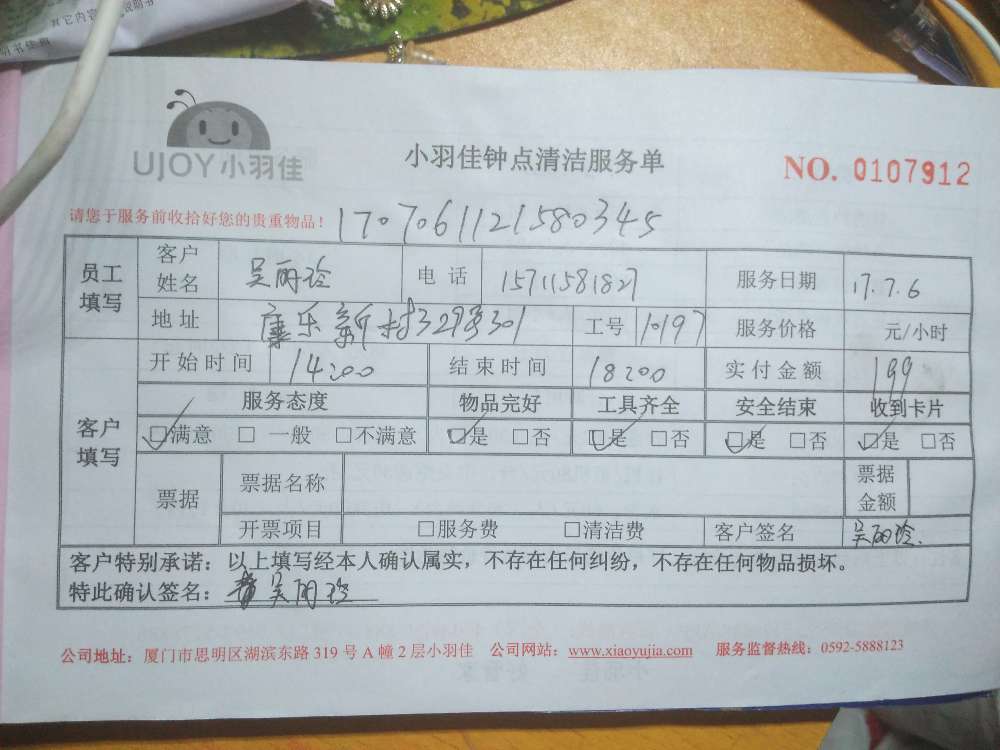 其它内容
说明书
明书佳酿
UJOY小羽佳
小羽佳钟点清洁服务单
NO. 0107912
请您于服务前收拾好您的贵重物品！
1707061121580345
员工填写 客户姓名 吴丽玲 电话 15711581827 服务日期 17.7.6
地址 康乐新村329号301 工号 10197 服务价格 元/小时
客户填写 开始时间 14:00 结束时间 18:00 实付金额 199
服务态度 物品完好 工具齐全 安全结束 收到卡片
☑满意 □一般 □不满意 ☑是 □否 ☑是 □否 ☑是 □否 ☑是 □否
票据 票据名称 票据金额
开票项目 □服务费 □清洁费 客户签名 吴丽玲
客户特别承诺：以上填写经本人确认属实，不存在任何纠纷，不存在任何物品损坏。
特此确认签名：吴丽玲
公司地址：厦门市思明区湖滨东路 319 号 A 幢 2 层小羽佳 公司网站：www.xiaoyujia.com 服务监督热线：0592-5888123